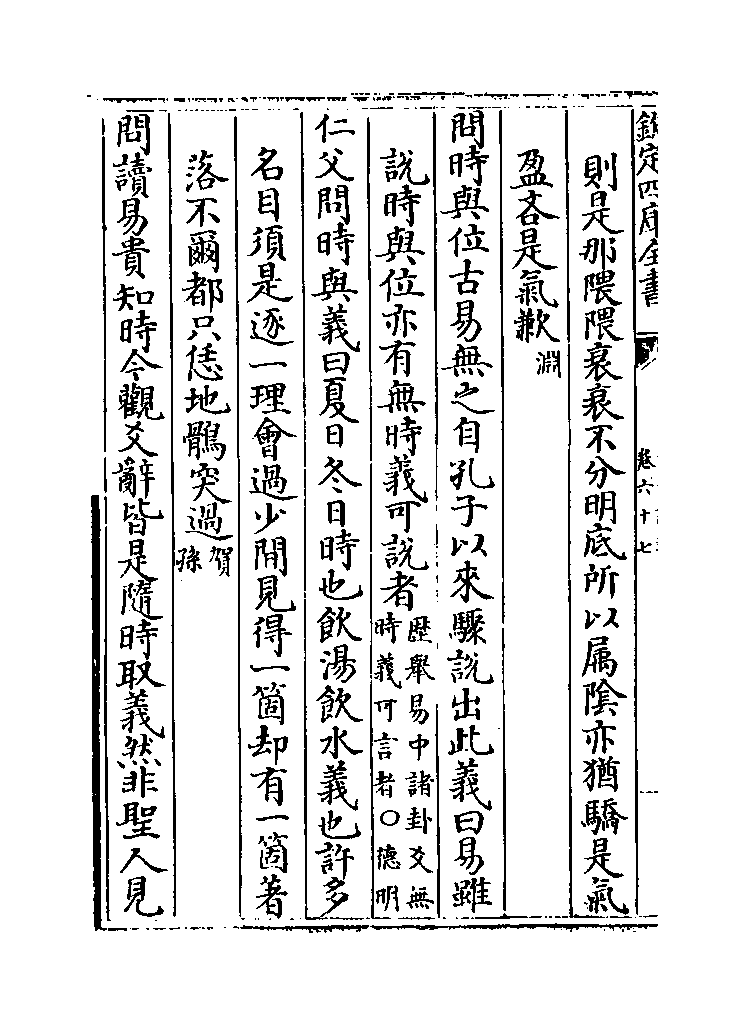 欽定四庫全書
卷六十七
則是那隈隈衮衮不分明底所以属陰亦猶驕是氣
盈吝是氣歉淵
問時與位古易無之自孔子以來驟説出此義曰易雖
說時與位亦有無時義可說者歴舉易中諸卦爻無時義可言者○德明
仁父問時與義曰夏日冬日時也飲湯飲水義也許多
名目須是逐一理會過少間見得一箇却有一箇著
落不爾都只恁地鶻突過賀孫
問讀易貴知時今觀爻辭皆是隨時取義然非聖人見